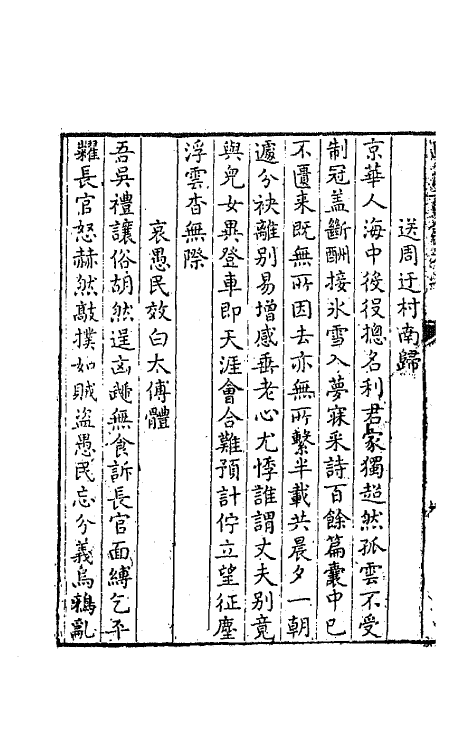 送周迂村南歸
京華人海中後役摠名利君家獨超然孤雲不受
制冠盖斷酬接氷雪入夢寐采詩百餘篇囊中已
不匱来既無所因去亦無所繫半載共晨夕一朝
遽分袂離别易增感垂老心尤悸誰謂丈夫别竟
與兒女異登車即天涯會合難預計佇立望征塵
浮雲杳無際
哀愚民效白太傅體
吾吳禮讓俗胡然逞凶
無食訴長官面縛乞平
糶長官怒赫然敲撲如賊盗愚民忘分義烏鵶亂